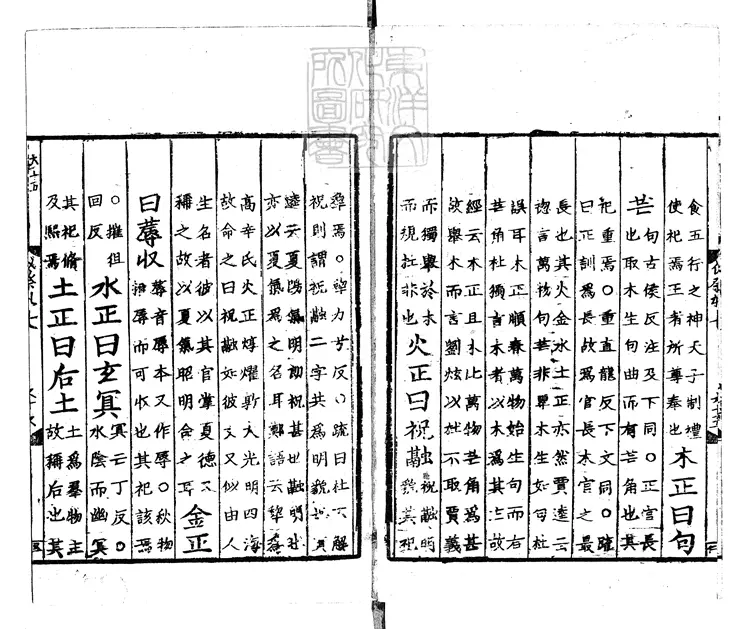 食五行之神天子制禮
使祀焉王者所尊奉也木正曰句
芒句古侯反注及下同○正官長
也取木生句曲而有芒角也其
祀重焉○重直龍反下文同○疏
曰正訓為長故為官長木官之最
長也其火金水土正亦然賈逵云
揔言萬物句芒非單木生如句杜
誤耳木正順春萬物始生句而有
芒角杜獨言木者以木為其主故
經云木正且木比萬物芒角為甚
故舉木而言劉炫以杜不取賈義
而獨舉於木
而規杜非也火正曰祝融祝融明
貌其祀
犂焉○犂力兮反○疏曰杜不解
祝則謂祝融二字共為明貌也賈
逵云夏陽氣明朗祝甚也融明也
亦以夏氣為之名耳鄭語云犂為
高辛氏火正淳燿敦大光明四海
故命之曰祝融如彼文又似由人
生名者彼以其官掌夏德又
稱之故以夏氣昭明命之耳金正
曰蓐収蓐音辱本又作辱○秋物
摧辱而可收也其祀該焉
○摧徂
回反水正曰玄冥冥亡丁反○
水陰而幽冥
其祀脩
及熙焉土正曰后土土為羣物主
故稱后也其